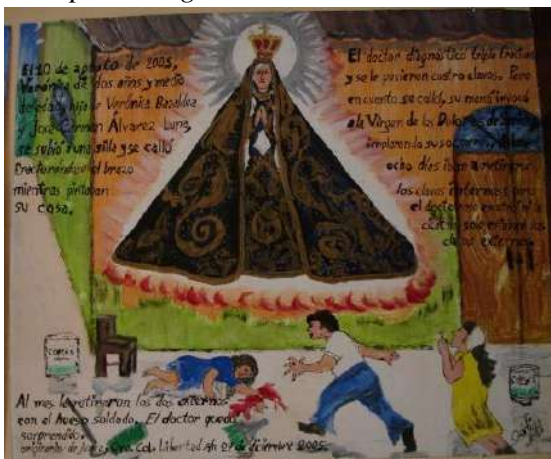 El 10 de agosto de 2005,
Verónica de dos años y medio
de edad, hija de Verónica Basaldua
y José Carmen Álvarez Luna,
se subió a una silla y se calló
fracturandose el brazo
mientras pintaban
su casa.
El doctor diagnosticó triple fractura
y se le pusieron cuatro clavos. Pero
en cuanto se calló, su mamá invocó
a la Virgen de los Dolores de
implorando la su socorro.
ocho días iban a retirar
los clavos internos pero
el doctor no encontró
solo estaban los
clavos externos.
COMEX
COMEX
Al mes le retiraron los dos externos
con el hueso soldado. El doctor quedó
sorprendido.
originarios de Gto. Col. Libertad 21 de diciembre 2005.